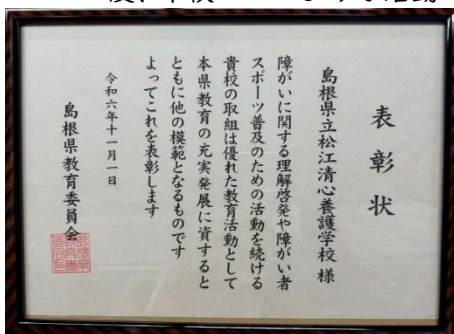 表彰状
島根県立松江清心養護学校 様
障がいに関する理解啓発や障がい者
スポーツ普及のための活動を続ける
貴校の取組は優れた教育活動として
本県教育の充実発展に資すると
ともに他の模範となるものです
よってこれを表彰します
令和六年十一月一日
島根県教育委員会